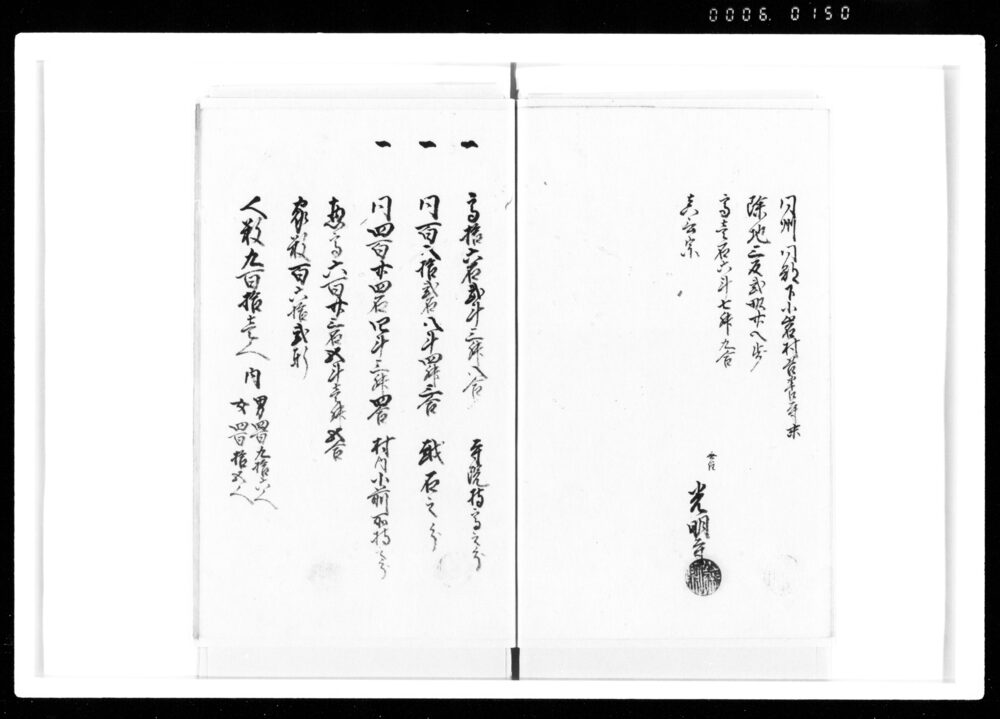 0006. 0150
同州同郡下小岩村善養寺末
除地三反弐畝廿八歩
高壱石六斗七升九合
真言宗
無住 光明寺
一 高拾六石弐斗三升八合 寺院持高之分
一 同百八拾弐石八斗四升三合 越石之分
一 同四百廿四石四斗三升四合 村内小前所持之分
惣高六百廿三石五斗壱升五合
家数百六拾弐軒
人数九百拾壱人 内
男四百九拾六人
女四百拾五人